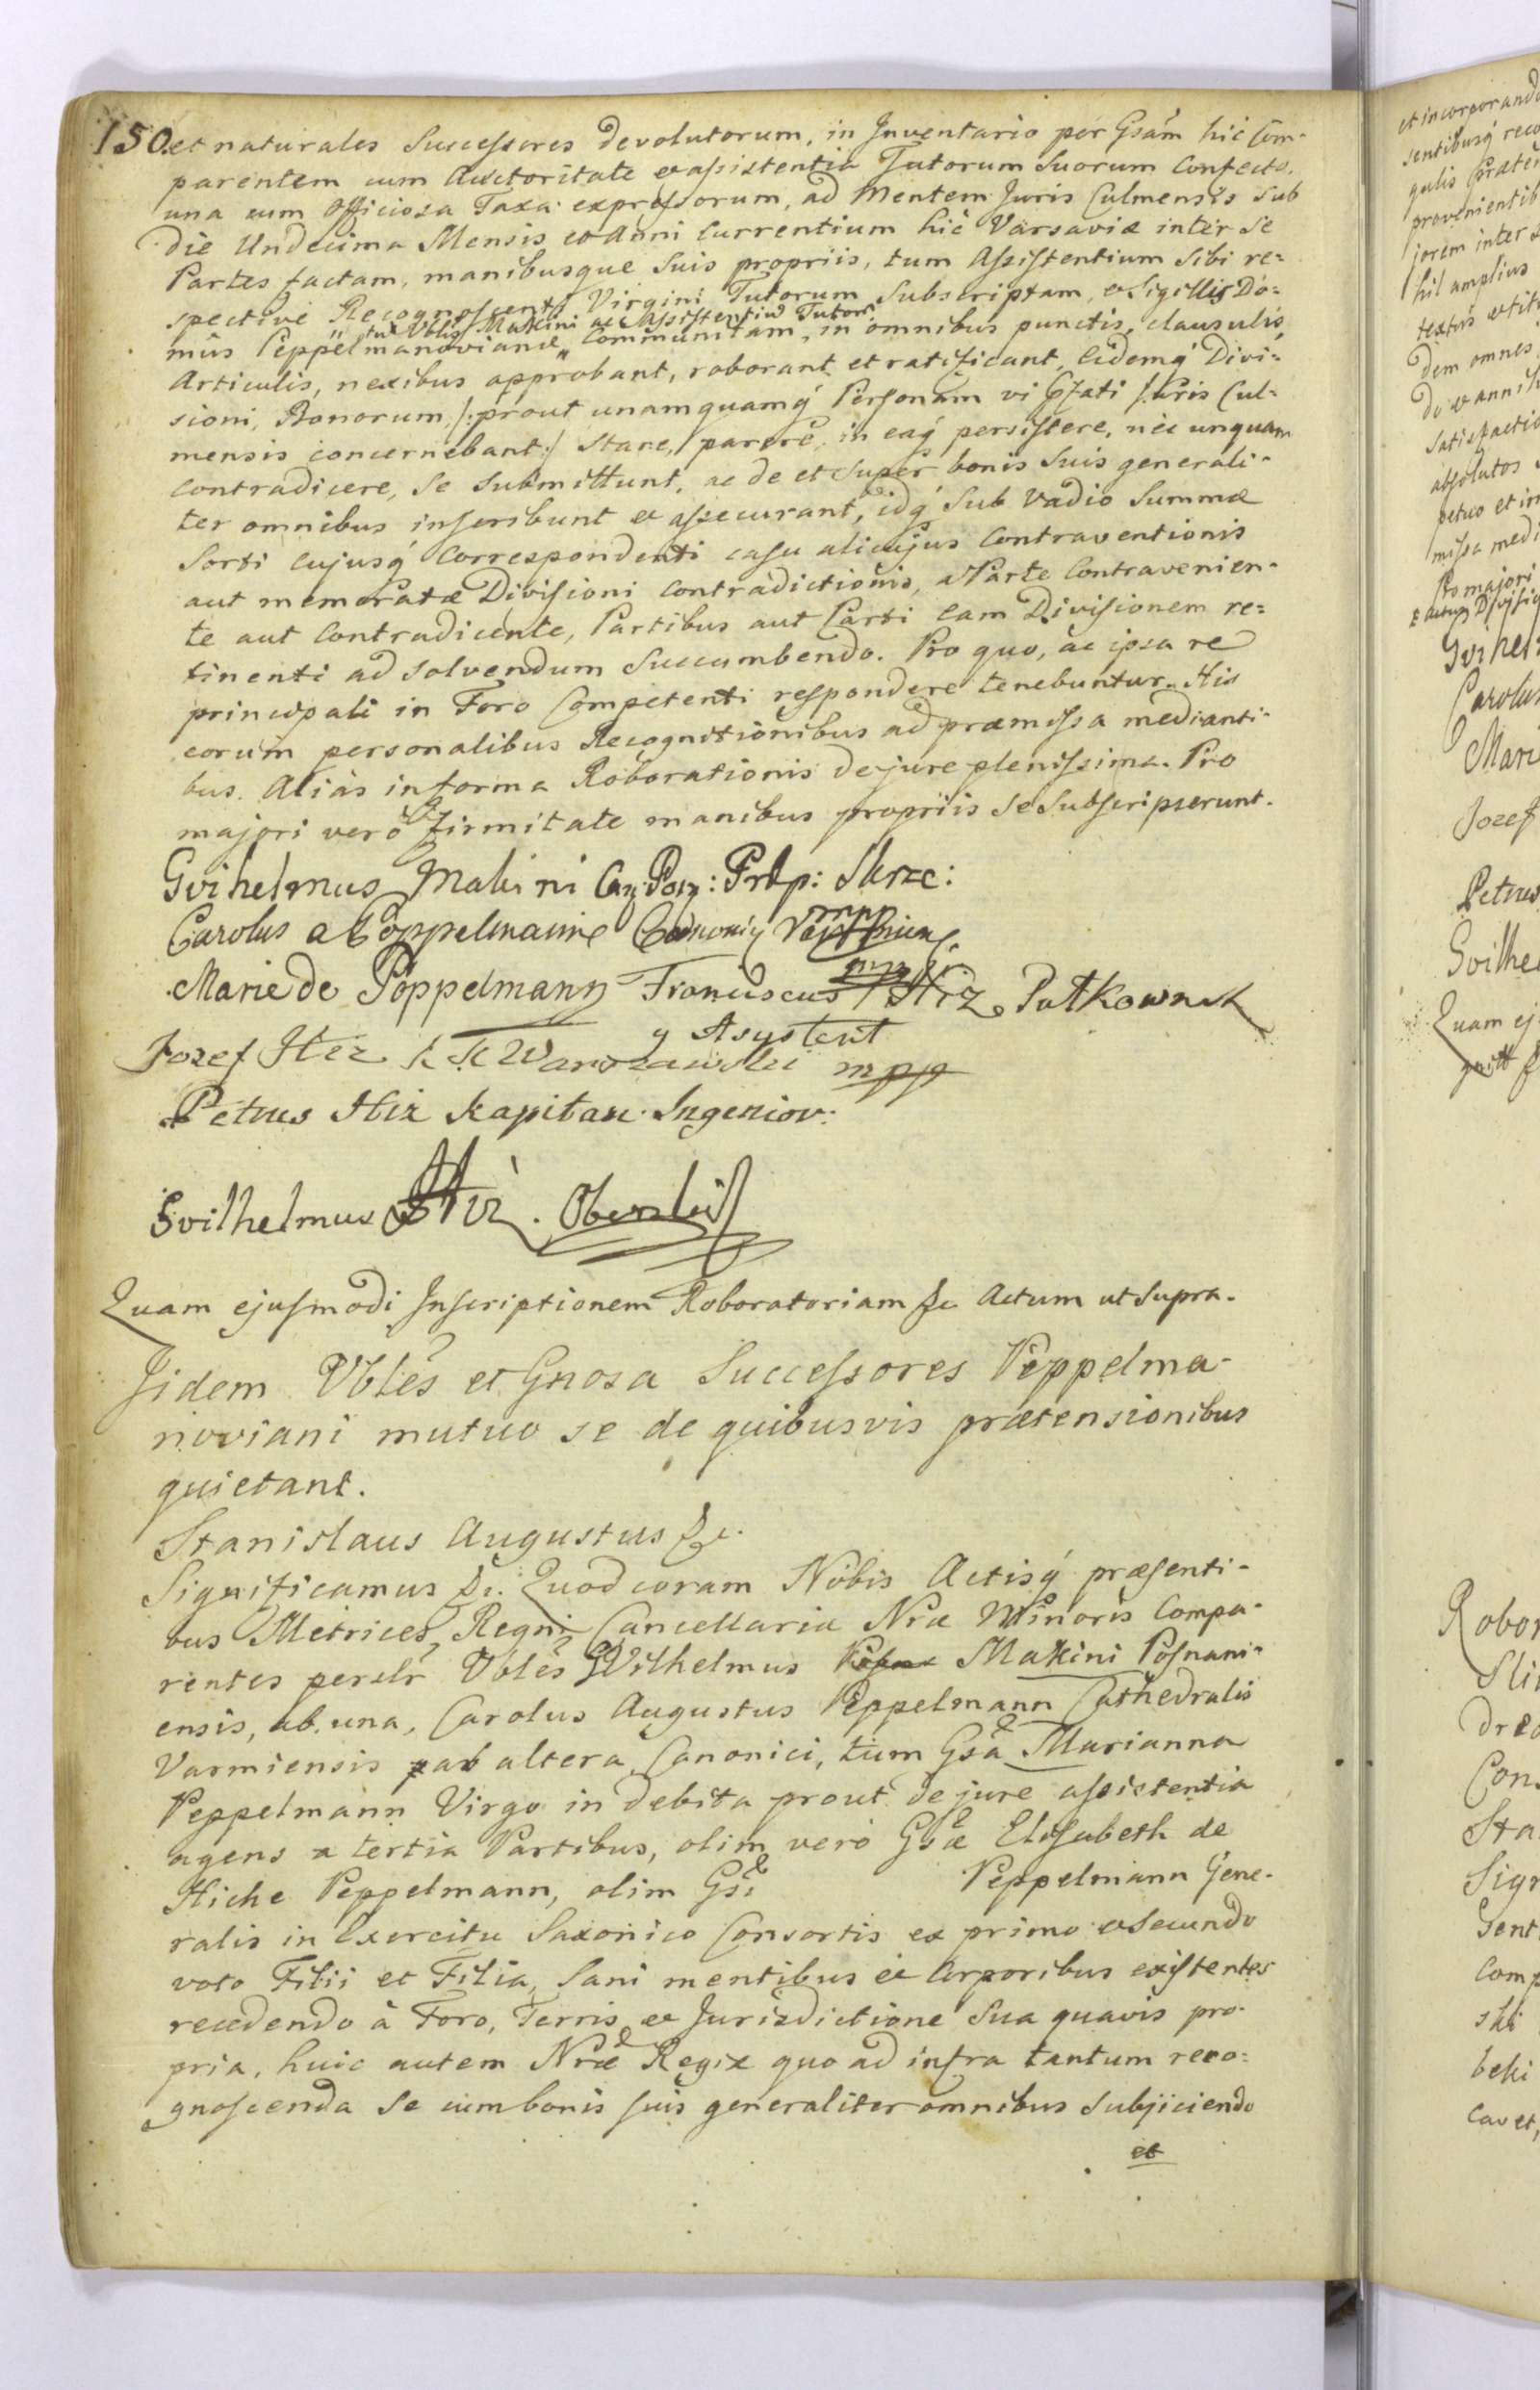 150. et naturales Successores devolutorum, in Inventario per Gsam hic Com-
parentem cum Auctoritate et assistentia Tutorum Suorum Confecto,
una cum officiosa Taxa expressorum, ad Mentem Juris Culmensis sub
die Undecima Mensis et Anni Currentium hic Varsaviæ inter se
Partes factam, manibusque suis propriis, tum Assistentium Sibi re=
spective Recognoscenti Virgini Tutorum subscriptam, et Sigillis Do=
tum Vblis Makini ac Assistentium Tutor
mus Peppelmanovianæ Communitam, in omnibus punctis, clausulis
Articulis, nexibus approbant, roborant et ratificant, eidemq́ Divi=
sioni, Bonorum /: prout unamquamq́ Personam vi Pfati Juris Cul=
mensis concernebant :/ stare, parere, in eaq́ persistere, nec unquam
contradicere, se submittunt, ac de et super bonis suis generali-
ter omnibus inscribunt et assecurant, idq́ sub vadio Summæ
Sorti cujusq́ Correspondenti casu alicujus Contraventionis
aut memoratæ Divisioni contradictionis, a Parte Contravenien-
te aut Contradicente, Partibus aut Parti eam Divisionem re=
tinenti ad solvendum succumbendo. Pro quo, ac ipsa re
principali in Foro Competenti respondere tenebuntur. His
eorum personalibus Recognitionibus ad præmissa medianti-
bus. Alias in forma Roborationis de jure plenissima. Pro
majori vero firmitate manibus propriis se subscripserunt.
Gvihelmus Makini Can: Posn: Prep: Skrze:
Carolus a Pöppelmann Canonig Varmiens. mpp
Marie de Pöppelmann Franciscus Hiz Pułkownik
y Asystent
Jozef Hiz Warszawski mpp
Petrus Hiz Kapitan Ingenior:
Gvilhelmus Hiz. Oberslei
Quam ejusmodi Inscriptionem Roboratoriam &c Actum ut supra.
Iidem Vbles et Gnosa Successores Peppelma-
noviani mutuo se de quibusvis prætensionibus
quietant.
Stanislaus Augustus &c.
Significamus &c. Quod coram Nobis Actisq́ præsenti-
bus Metrices Regni Cancellariæ Nræ Minoris Compa-
rentes perslr Vbles Wilhelmus Makini Posnani-
ensis, ab una, Carolus Augustus Peppelmann Cathedralis
Varmiensis ab altera, Canonici, tum Gsa Marianna
Peppelmann Virgo in debita prout de jure assistentia
agens a tertia Partibus, olim vero Gsæ Elisabeth de
Hiche Peppelmann, olim Gsi Peppelmann Gene-
ralis in Exercitu Saxonico Consortis ex primo et Secundo
voto Filii et Filia, sani mentibus et Corporibus existentes
recedendo à Foro, Terris et Jurisdictione sua quavis pro-
pria, huic autem Nræ Regiæ quo ad infra tantum reco=
gnoscenda se cum bonis suis generaliter omnibus subjiciendo
et
et incorporando
sentibusq́ reco
provenientib
jorem inter
hil amplius
dem omnes
satisfactio
absolutos
petuo et in
missa medi
Pro majori
Gvihel
Carolus
Mari
Jozef
Petrus
Gvilhe
Quam ej
Robor
Con
Sta
Sign
comp
beki
cavet,